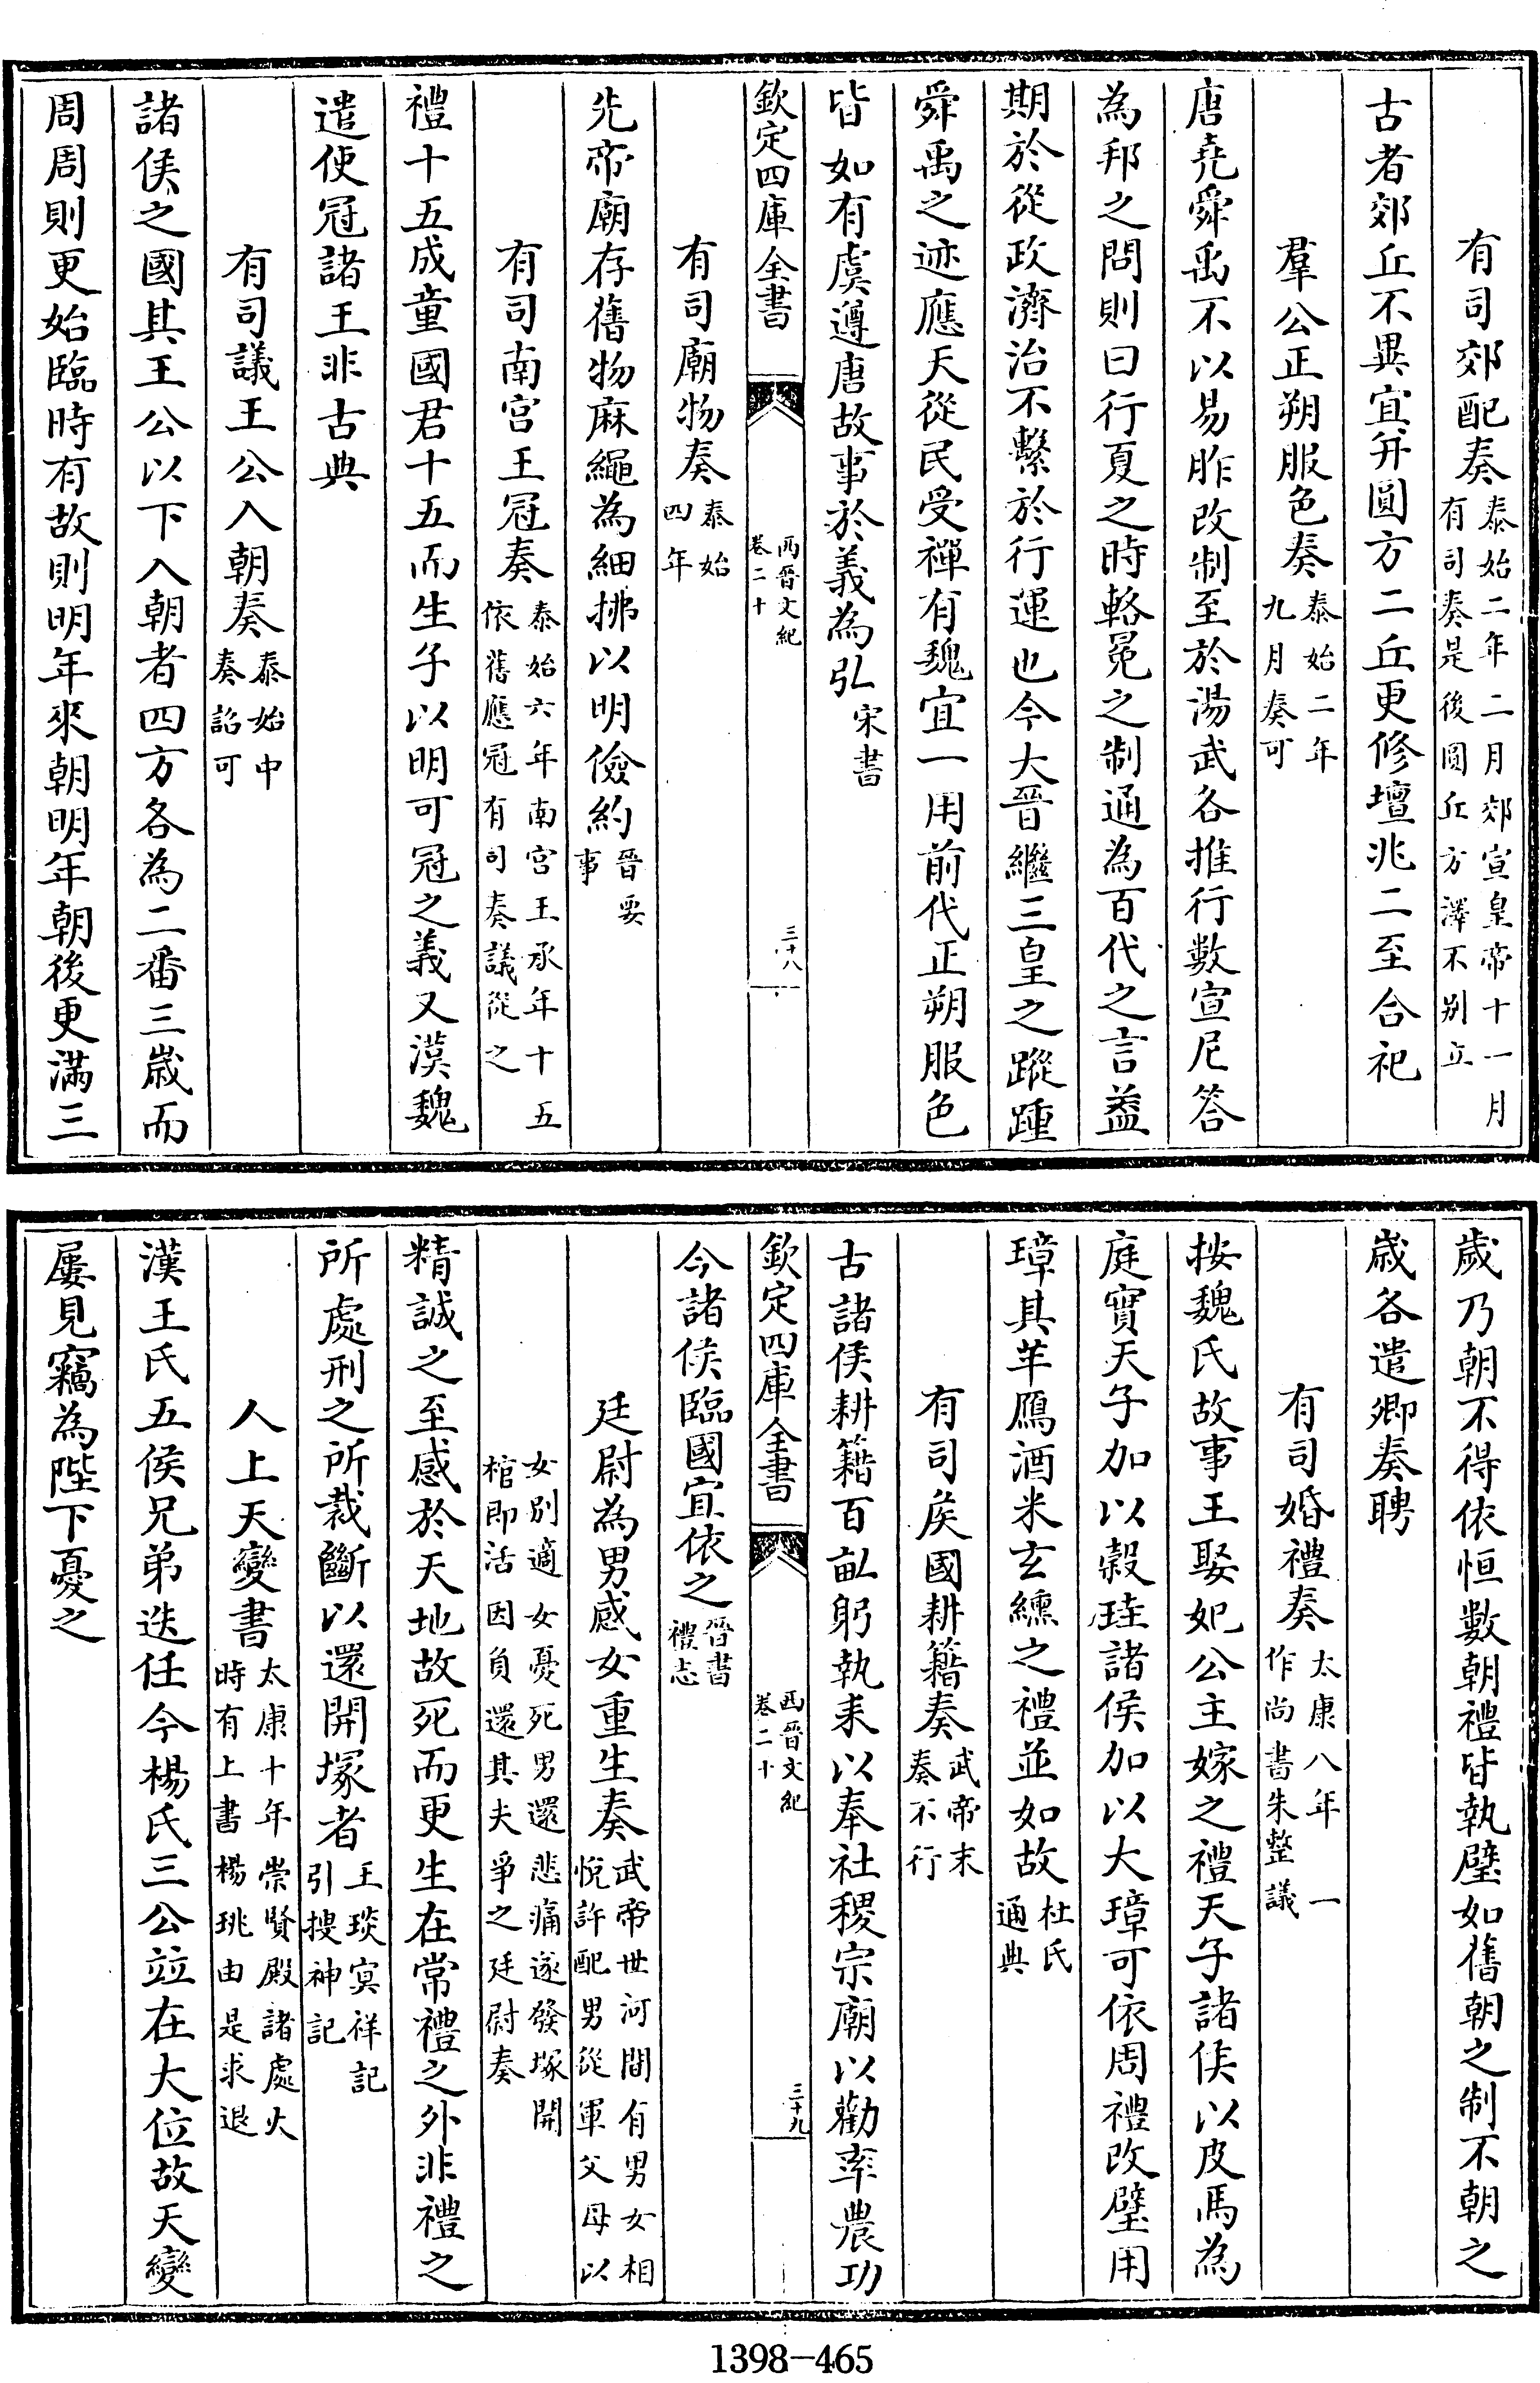 有司郊配奏泰始二年二月郊宣皇帝十一月有司奏是後圓丘方澤不别立
古者郊丘不異宜并圓方二丘更修壇兆二至合祀
羣公正朔服色奏泰始二年九月奏可
唐堯舜禹不以易胙改制至於湯武各推行數宣尼答
為邦之問則曰行夏之時輅冕之制通為百代之言葢
期於從政濟治不繫於行運也今大晉繼三皇之蹤踵
舜禹之迹應天從民受禪有魏宜一用前代正朔服色
皆如有虞遵唐故事於義為弘宋書
欽定四庫全書 西晉文紀卷二十 三十八
有司廟物奏泰始四年
先帝廟存舊物麻繩為細拂以明儉約晉要事
有司南宫王冠奏泰始六年南宫王承年十五依舊應冠有司奏議從之
禮十五成童國君十五而生子以明可冠之義又漢魏
遣使冠諸王非古典
有司議王公入朝奏泰始中奏詔可
諸侯之國其王公以下入朝者四方各為二番三嵗而
周周則更始臨時有故則明年來朝明年朝後更滿三
歲乃朝不得依恒數朝禮皆執璧如舊朝之制不朝之
嵗各遣卿奏聘
有司婚禮奏太康八年一作尚書朱整議
按魏氏故事王娶妃公主嫁之禮天子諸侯以皮馬為
庭實天子加以榖珪諸侯加以大璋可依周禮改璧用
璋其羊鴈酒米玄纁之禮並如故杜氏通典
有司矦國耕籍奏武帝末奏不行
古諸侯耕籍百畝躬執耒以奉社稷宗廟以勸率農功
欽定四庫全書 西晉文紀卷二十 三十九
今諸侯臨國宜依之晉書禮志
廷尉為男感女重生奏武帝世河間有男女相悅許配男從軍父母以
女别適女憂死男還悲痛遂發塚開棺即活因負還其夫爭之廷尉奏
精誠之至感於天地故死而更生在常禮之外非禮之
所處刑之所裁斷以還開塚者王琰冥祥記引搜神記
人上天變書太康十年崇賢殿諸處火時有上書楊珧由是求退
漢王氏五侯兄弟迭任今楊氏三公竝在大位故天變
屢見竊為陛下憂之
1398-465